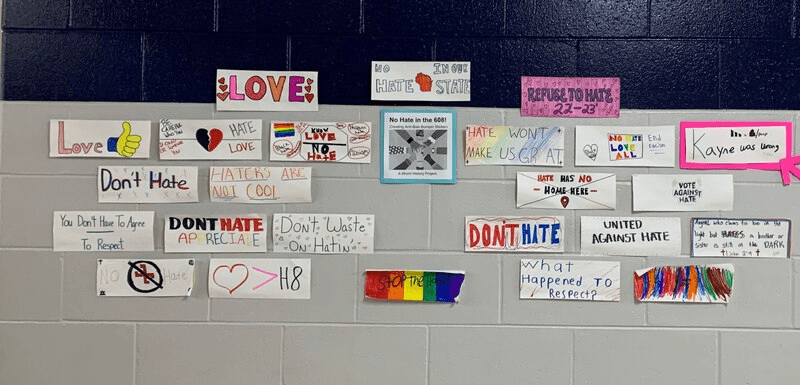 LOVE
NO IN OUR
HATE STATE
REFUSE TO HATE
22-23
Love
HATE
LOVE
KNOW
LOVE
NO
HATE
No Hate in the 608!
Creating Anti-Bias Bumper Stickers
A World History Project
HATE WON'T
MAKE US GR AT
NO HATE
LOVE
ALL
End
racism
Kayne was wrong
Don't Hate
HATERS ARE
NOT COOL
HATE HAS NO
HOME HERE
VOTE
AGAINST
HATE
You Don't Have To Agree
To Respect
DON'T HATE
APPRECIATE
Don't Waste
On Hatin'
DON'T HATE
UNITED
AGAINST HATE
Anyone who claims to be in the
light but HATES a brother or
sister is still in the DARK
No Hate
> H8
STOP the
What
Happened To
Respect?